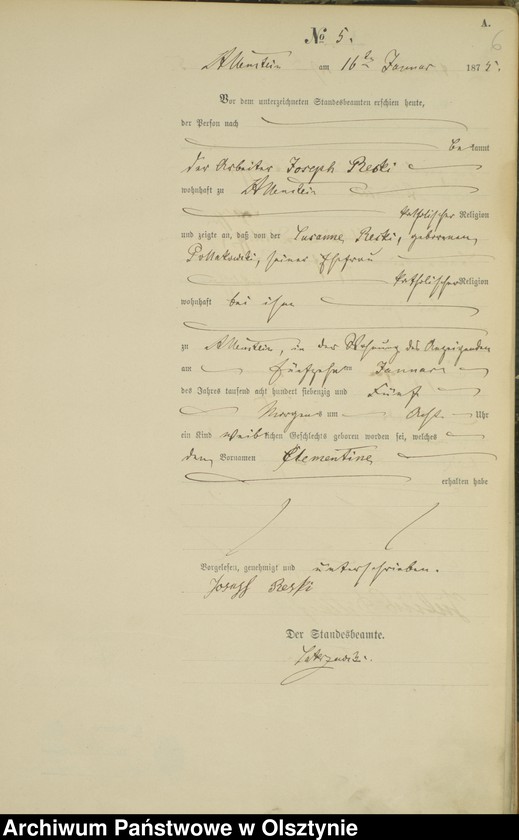 A.
6
No 5.
Allenstein am 16ten Januar 1875.
Vor dem unterzeichneten Standesbeamten erschien heute,
der Person nach
bekannt
der Arbeiter Joseph Reski
wohnhaft zu Allenstein
katholischer Religion
und zeigte an, daß von der Susanne Reski, geborenen
seiner Ehefrau
katholischer Religion
wohnhaft bei ihm
zu Allenstein, in der Wohnung des Anzeigenden
am fünfzehnten Januar
des Jahres tausend acht hundert siebenzig und Fünf
Morgens um Acht Uhr
ein Kind weiblichen Geschlechts geboren worden sei, welches
den Vornamen Clementine
erhalten habe
Vorgelesen, genehmigt und unterschrieben.
Joseph Reski
Der Standesbeamte.
Archiwum Państwowe w Olsztynie